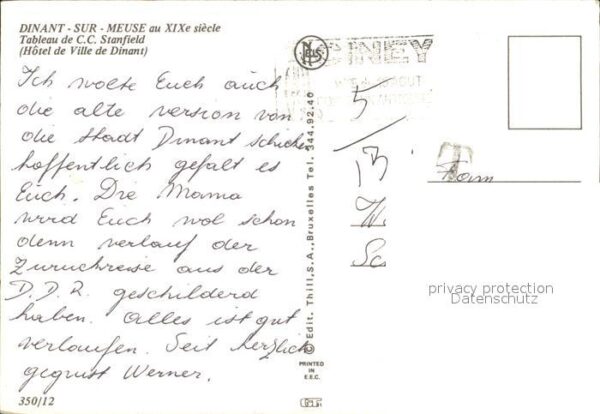 DINANT - SUR - MEUSE au XIXe siècle
Tableau de C.C. Stanfield
(Hôtel de Ville de Dinant)
Ich wolte Euch auch
die alte version von
die stadt Dinant schicken
hoffentlich gefalt es
Euch. Die Mama
wird Euch wol schon
denn verlauf der
Zuruchreise aus der
D.D.R. geschilderd
haben. Alles ist gut
verlaufen. Seit herzlich
gegrust Werner.
350/12
NELS
CINEY
© Edit. Thill, S.A., Bruxelles Tel. 344.92.40
PRINTED
IN
E.E.C.
5
13
W
Sc
T
Fam
privacy protection
Datenschutz